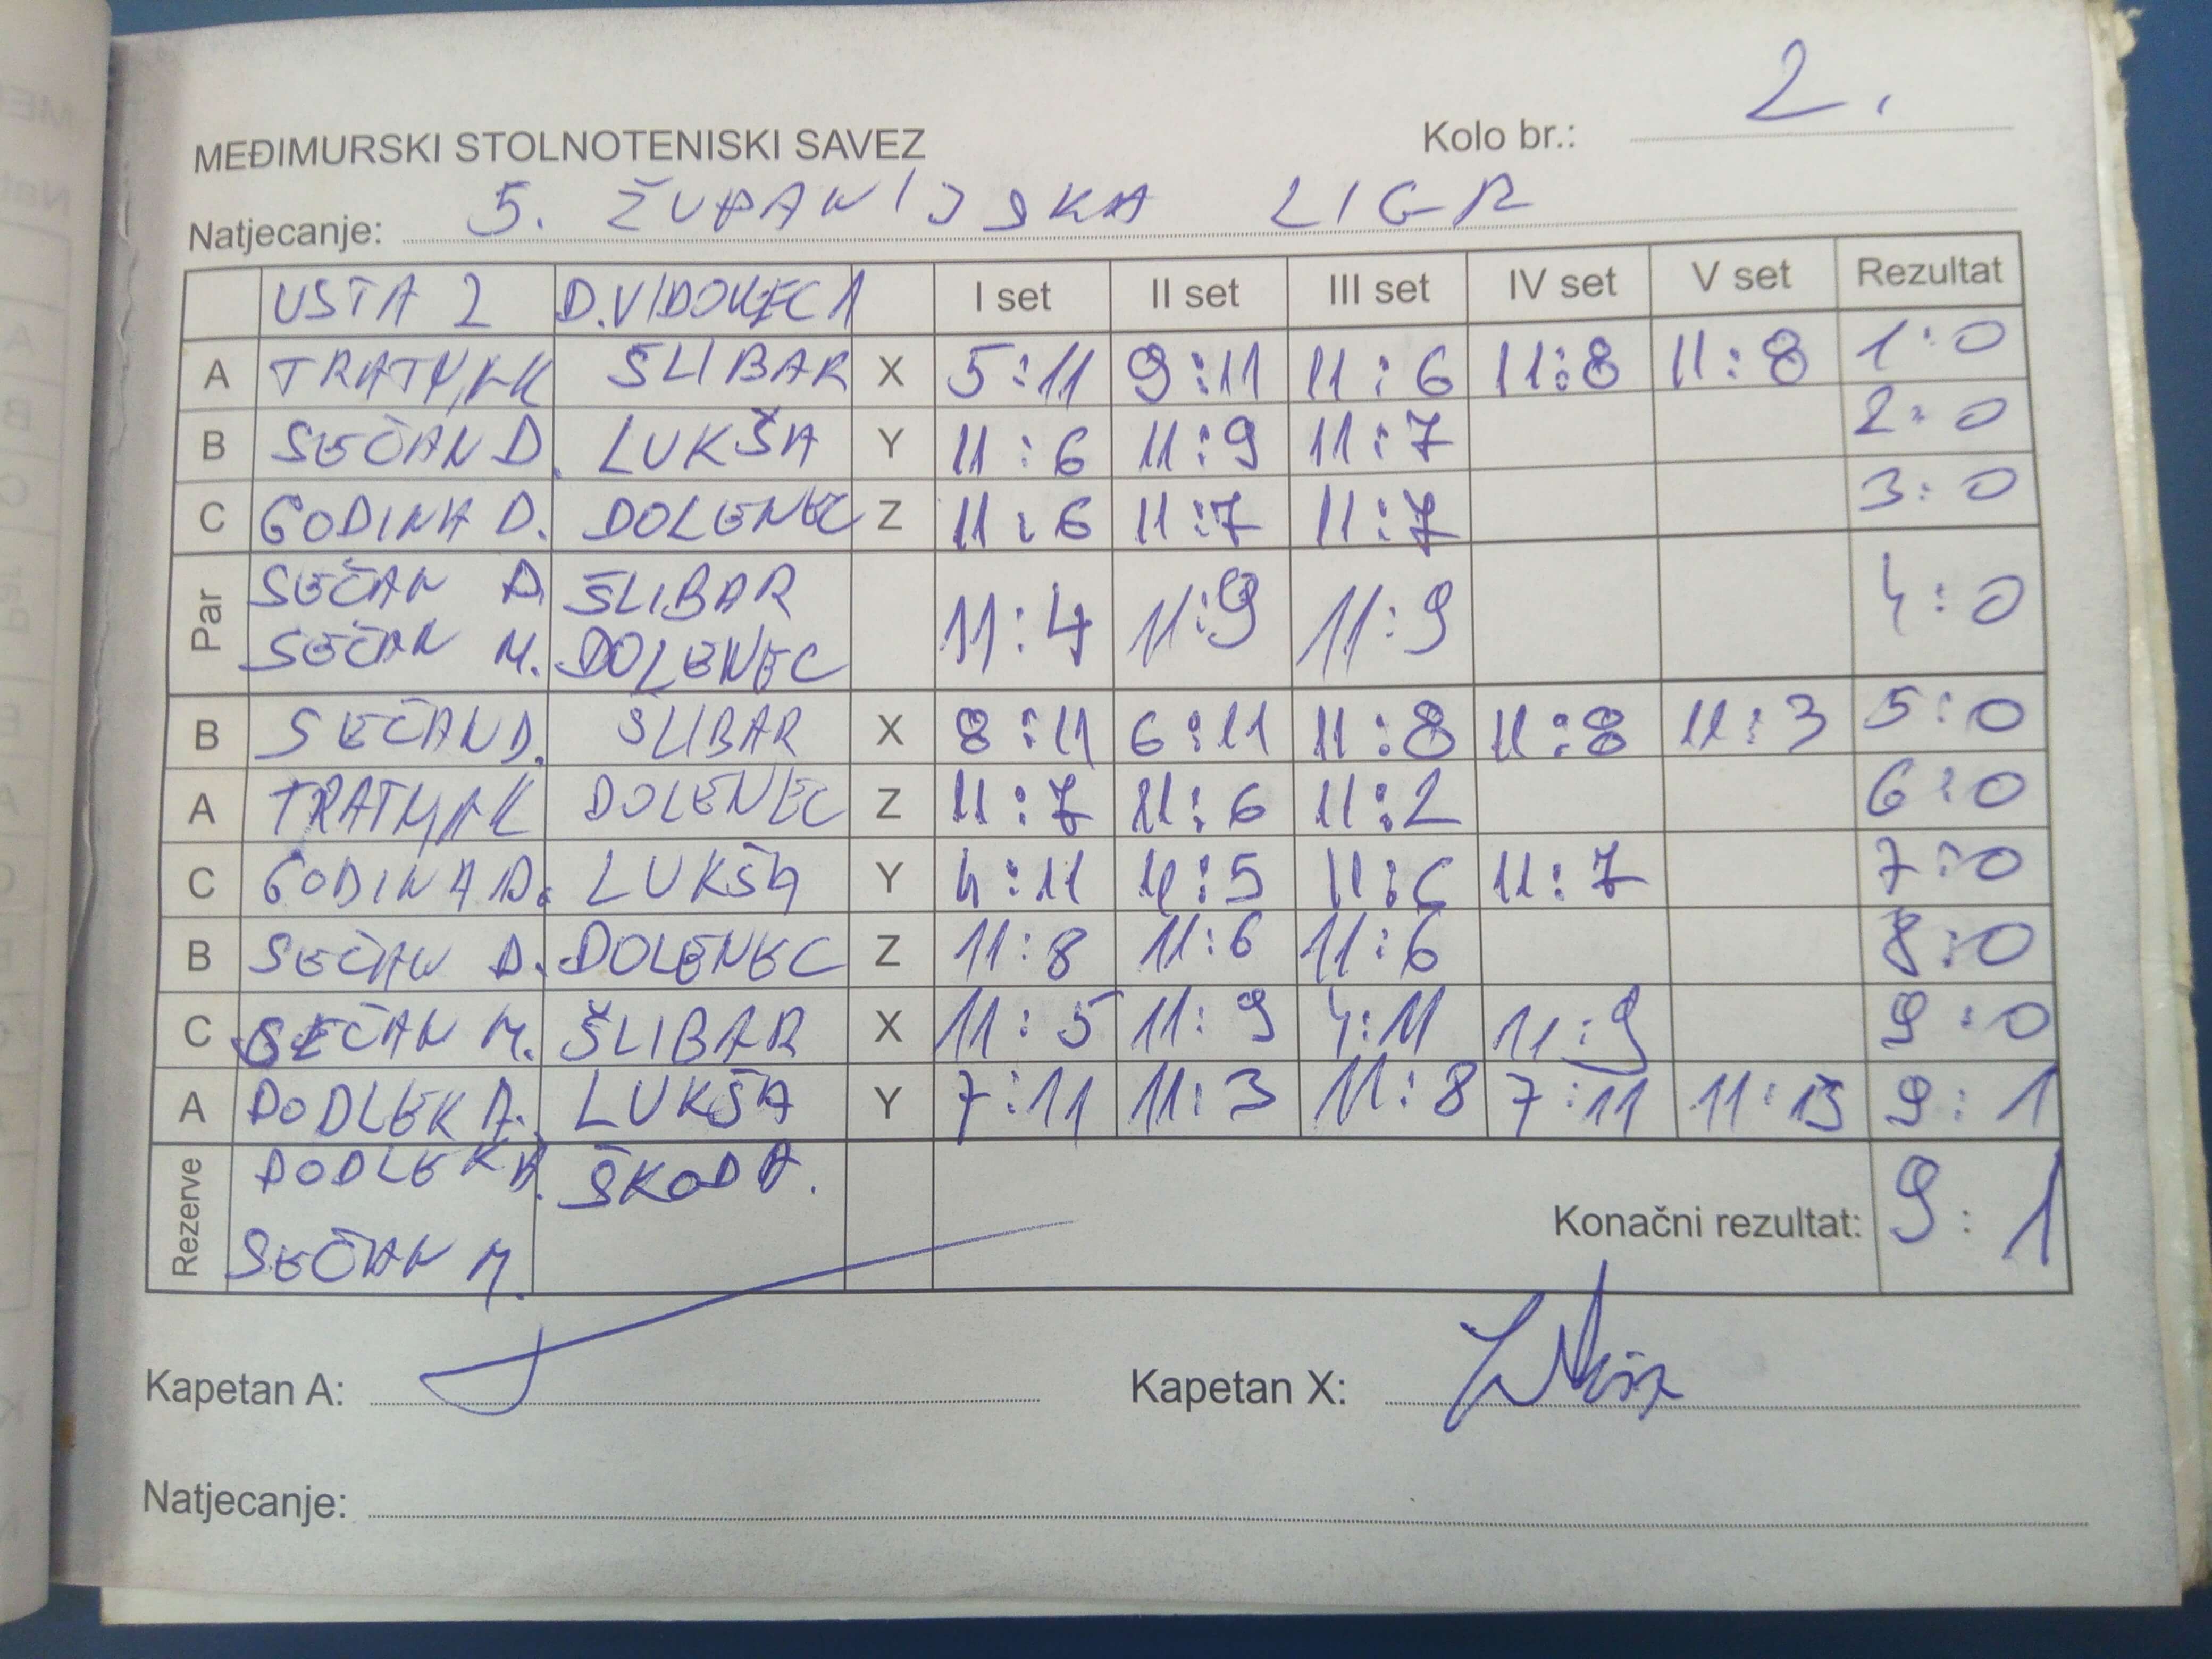 Kolo br.: 2.
MEĐIMURSKI STOLNOTENISKI SAVEZ
Natjecanje: 5. ŽUPANIJSKA LIGA
USTA 2 D.VIDOVEC 1 I set II set III set IV set V set Rezultat
A ŠLIBAR X 5:11 9:11 11:6 11:8 11:8 1:0
B SEČAN D. LUKŠA Y 11:6 11:9 11:7 2:0
C GODINA D. DOLENEC Z 11:6 11:7 11:7 3:0
Par SEČAN D. ŠLIBAR 11:4 11:9 11:9 4:0
SEČAN M. DOLENEC
B SEČAN D. ŠLIBAR X 8:11 6:11 11:8 11:8 11:3 5:0
A DOLENEC Z 11:7 11:6 11:2 6:0
C GODINA D. LUKŠA Y 4:11 11:5 11:6 11:7 7:0
B SEČAN D. DOLENEC Z 11:8 11:6 11:6 8:0
C SEČAN M. ŠLIBAR X 11:5 11:9 4:11 11:9 9:0
A DODLEK D. LUKŠA Y 7:11 11:3 11:8 7:11 11:13 9:1
Rezerve DODLEK D. ŠKODA.
SEČAN M.
Konačni rezultat: 9:1
Kapetan A: Kapetan X:
Natjecanje: